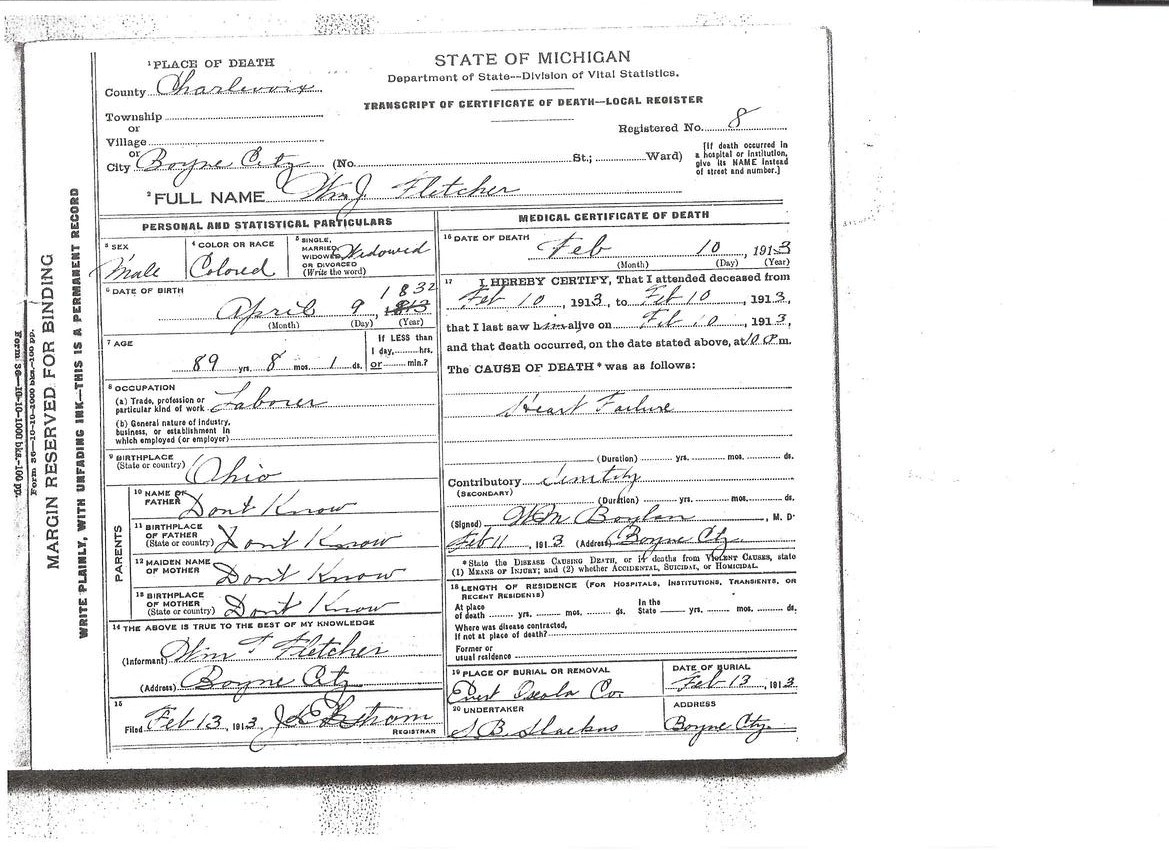 STATE OF MICHIGAN
Department of State—Division of Vital Statistics.
TRANSCRIPT OF CERTIFICATE OF DEATH—LOCAL REGISTER
Registered No. 8
[If death occurred in
a hospital or institution,
give its NAME instead
of street and number.]
1 PLACE OF DEATH
County Charlevoix
Township
or
Village
or
City Boyne City (No. St.; Ward)
2 FULL NAME Wm J. Fletcher
PERSONAL AND STATISTICAL PARTICULARS
3 SEX
Male
4 COLOR OR RACE
Colored
5 SINGLE,
MARRIED
WIDOWED Widowed
OR DIVORCED
(Write the word)
6 DATE OF BIRTH
1832
April 9, 1813
(Month) (Day) (Year)
7 AGE
89 yrs. 8 mos. 1 ds.
If LESS than
1 day, hrs.
or min.?
8 OCCUPATION
(a) Trade, profession or
particular kind of work Laborer
(b) General nature of industry,
business, or establishment in
which employed (or employer)
9 BIRTHPLACE
(State or country) Ohio
PARENTS
10 NAME OF
FATHER Dont Know
11 BIRTHPLACE
OF FATHER
(State or country) Dont Know
12 MAIDEN NAME
OF MOTHER Dont Know
13 BIRTHPLACE
OF MOTHER
(State or country) Dont Know
14 THE ABOVE IS TRUE TO THE BEST OF MY KNOWLEDGE
(Informant) Wm F Fletcher
(Address) Boyne City
15
Filed Feb 13, 1913
REGISTRAR
MEDICAL CERTIFICATE OF DEATH
16 DATE OF DEATH
Feb 10, 1913
(Month) (Day) (Year)
17 I HEREBY CERTIFY, That I attended deceased from
Feb 10, 1913, to Feb 10, 1913,
that I last saw him alive on Feb 10, 1913,
and that death occurred, on the date stated above, at 10 P m.
The CAUSE OF DEATH* was as follows:
Heart Failure
(Duration) yrs. mos. ds.
Contributory
(SECONDARY)
(Duration) yrs. mos. ds.
(Signed) Wm Boylan, M. D.
Feb 11, 1913 (Address) Boyne Cty
*State the DISEASE CAUSING DEATH, or if deaths from VIOLENT CAUSES, state
(1) MEANS OF INJURY; and (2) whether ACCIDENTAL, SUICIDAL, or HOMICIDAL.
18 LENGTH OF RESIDENCE (FOR HOSPITALS, INSTITUTIONS, TRANSIENTS, OR
RECENT RESIDENTS)
At place
of death yrs. mos. ds.
In the
State yrs. mos. ds.
Where was disease contracted,
if not at place of death?
Former or
usual residence
19 PLACE OF BURIAL OR REMOVAL
Osceola Co.
DATE OF BURIAL
Feb 13, 1913
20 UNDERTAKER
S B
ADDRESS
Boyne City
MARGIN RESERVED FOR BINDING
WRITE PLAINLY, WITH UNFADING INK—THIS IS A PERMANENT RECORD
Form 36—10-10-1000 bks.-100 pp.
Form 36—10-10-1000 bks.—100 pp.